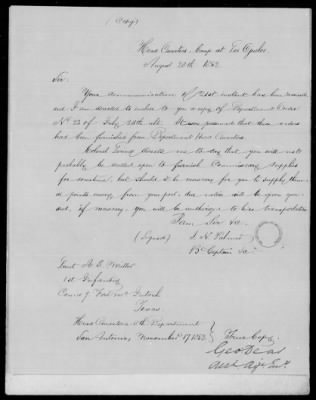 (Copy)
Head Quarters Camp at
August 20th 1852
Sir:
Your communication of instant has been received
and I am directed to enclose to you a copy of Department Order
No 23 of July It was presumed that these orders
had been furnished from Department Head Quarters
Colonel directs me to say that you will not
probably be called upon to furnish Commissary supplies
for sometime, but should it be necessary for you to supply them
at points away from your post, due notice will be given you
and, if necessary, you will be authorized to hire transportation
I am, Sir &c.
(Signed) J. N. Palmer
Bt Captain &c
Lieut
1st Infantry
Fort
Texas
Head Quarters 8th Department
San Antonio, November 17, 1852
True Copy
Geo Deas
Asst Adjt Genl.